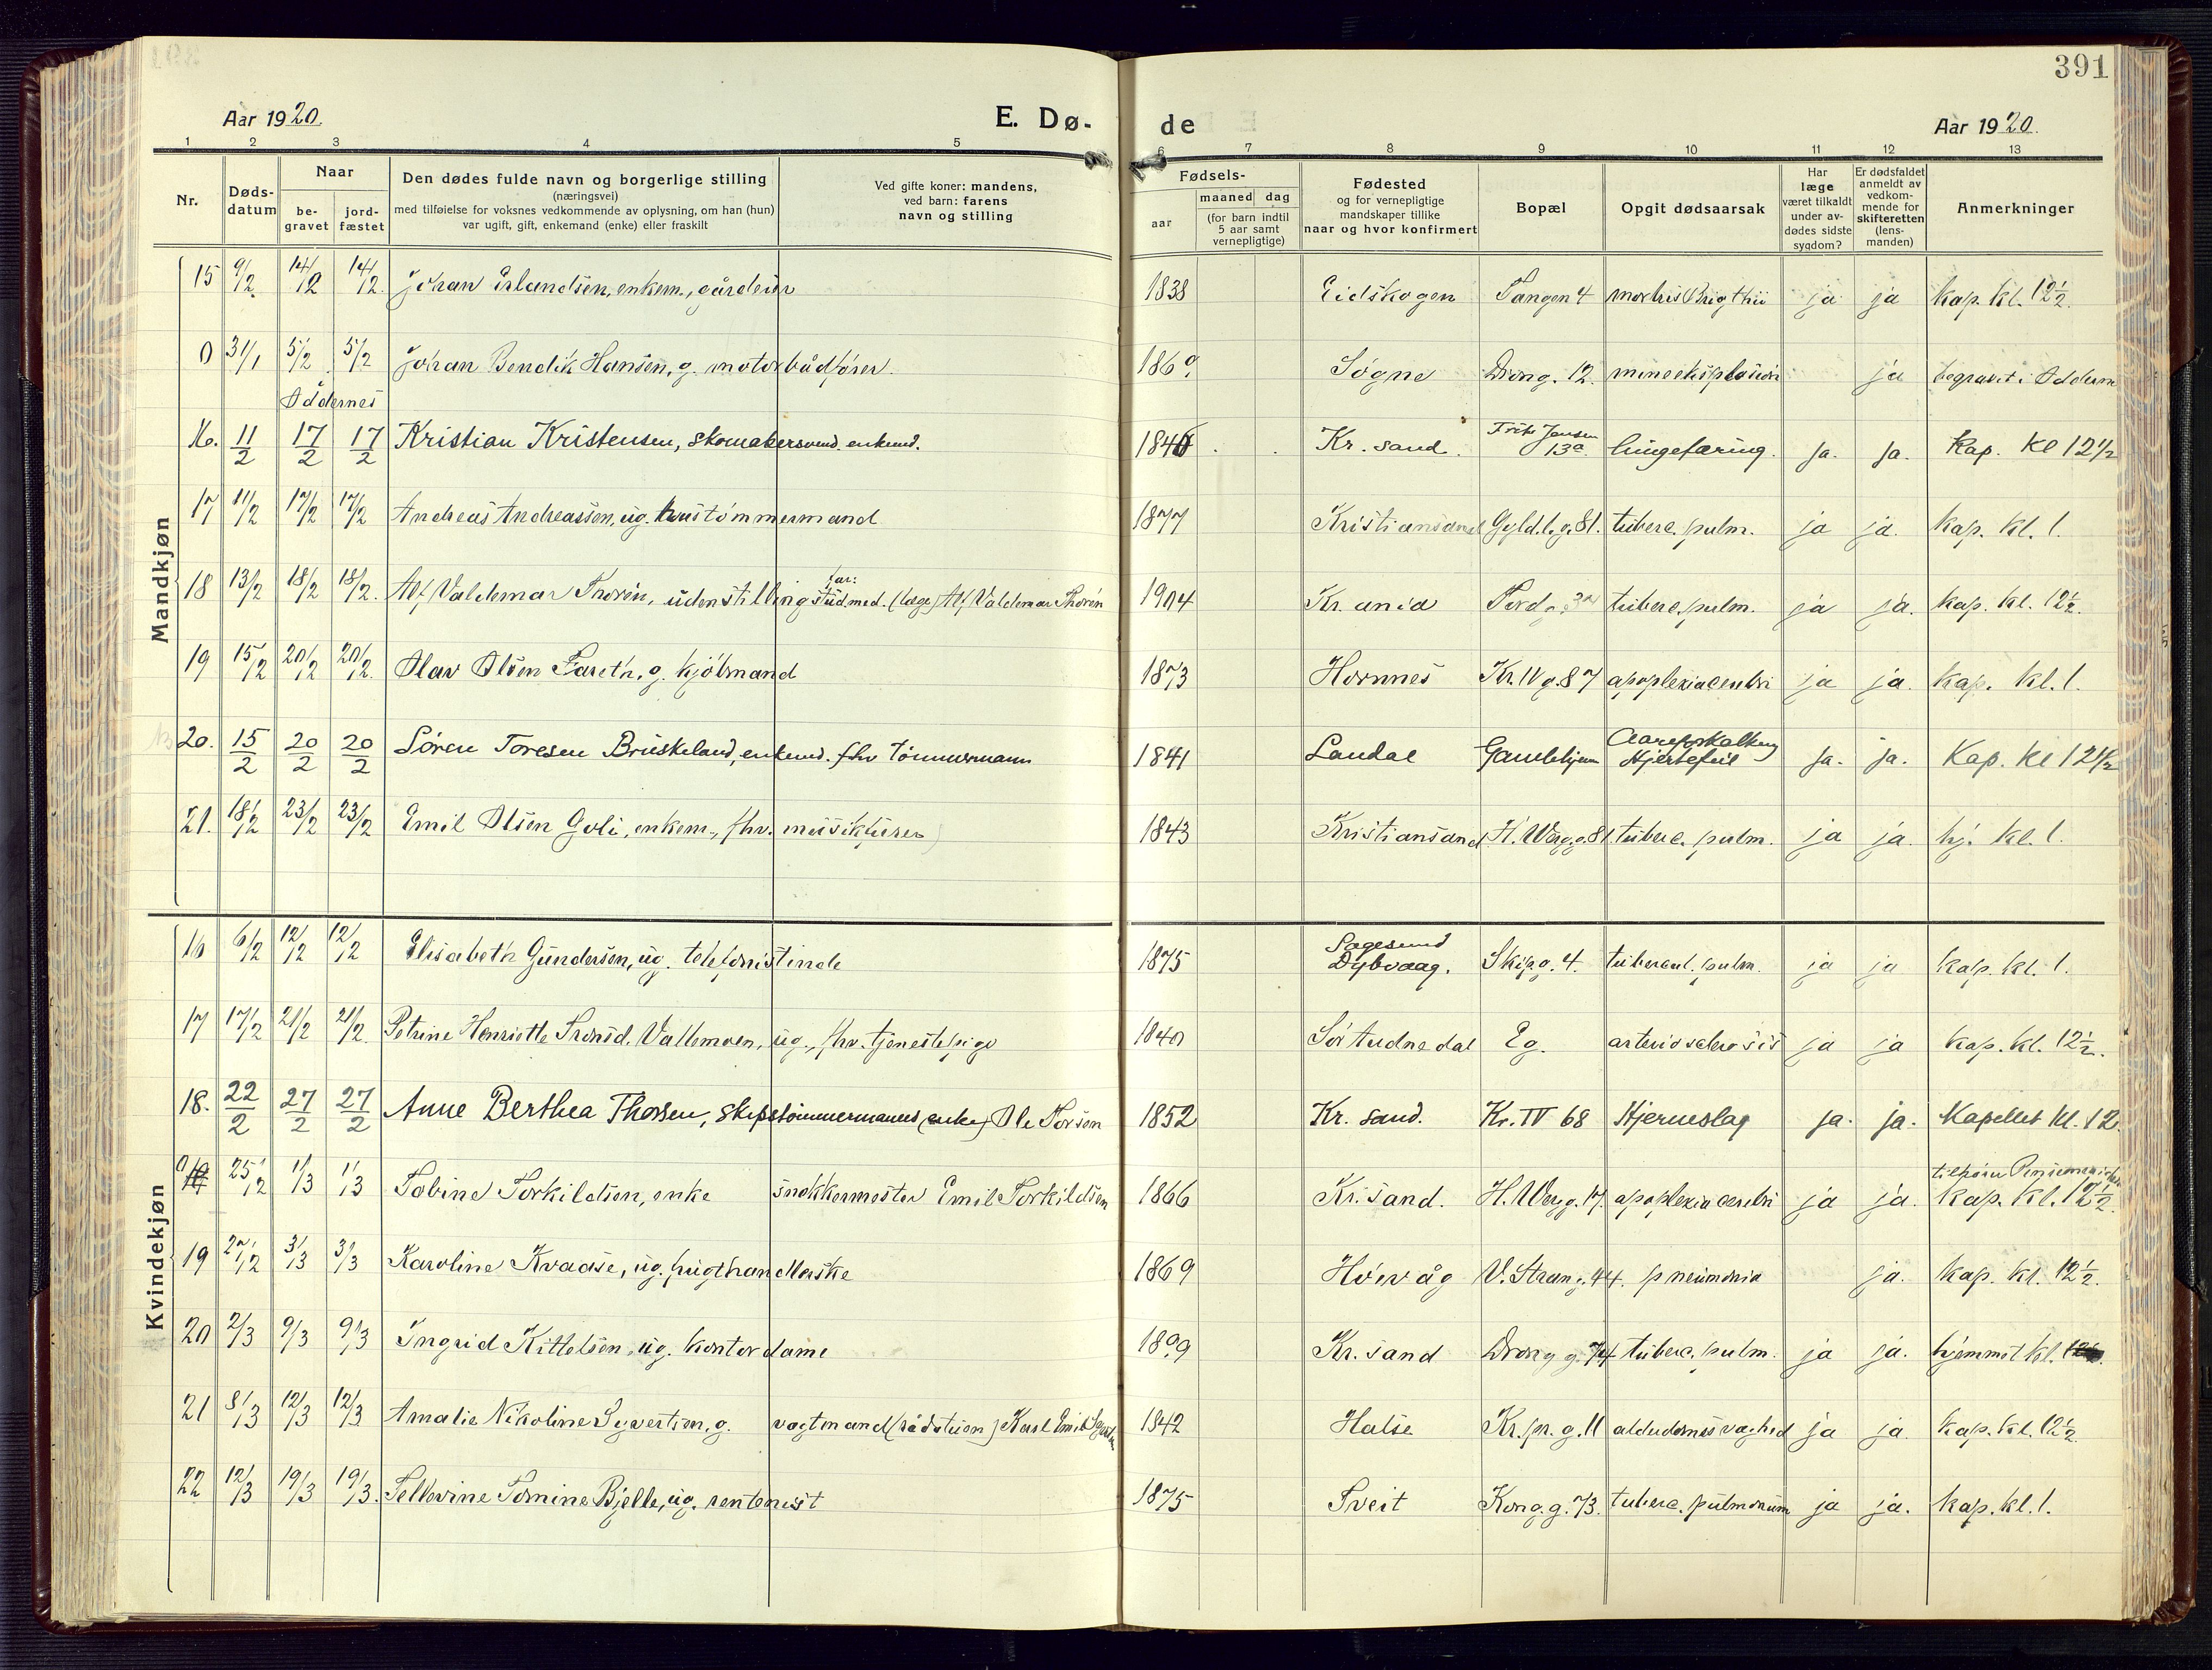 391
Aar 1920.
E. Dø-
de
Aar 1920.
1 2 3 4 5 6 7 8 9 10 11 12 13
Nr.
Dødsdatum
Naar
begravet
jordfæstet
Den dødes fulde navn og borgerlige stilling
(næringsvei)
med tilføielse for voksnes vedkommende av oplysning, om han (hun)
var ugift, gift, enkemand (enke) eller fraskilt
Ved gifte koner: mandens,
ved barn: farens
navn og stilling
Fødsels-
aar
maaned dag
(for barn indtil
5 aar samt
vernepligtige)
Fødested
og for vernepligtige
mandskaper tillike
naar og hvor konfirmert
Bopæl
Opgit dødsaarsak
Har
læge
været tilkaldt
under av-
dødes sidste
sygdom?
Er dødsfaldet
anmeldt av
vedkom-
mende for
skifteretten
(lens-
manden)
Anmerkninger
Mandkjøn
15 9/2 14/2 14/2. Johan Erlandsen, enkem., gårdeier 1838 Eidskogen Tangen 4 morbus Brigthii ja ja kap. kl. 12½.
0 31/1 5/2 5/2 Johan Bendik Hansen, g. motorbådfører. 1869. Søgne Dron g. 12. mineeksplosion ja begravet i Oddernes
Oddernes
16. 11/2 17/2 17/2 Kristian Kristensen, skomakersvend. enkemd. 1846 Kr. sand. Fritz Jensen 13a lungefæring. Ja. Ja. Kap. Kl 12½
17 11/2 17/2 17/2 Andreas Andreassen, ug. hustømmermand 1877 Kristiansand Gyld.l.g. 81. tuberc. pulm. ja ja. kap. kl. 1.
18 13/2 18/2 18/2. Alf Valdemar Thorén, uden stilling far: stud.med. (læge) Alf Valdemar Thorén 1904 Kr.ania Tord g. tuberc. pulm. ja ja. kap. kl. 12½.
19 15/2 20/2 20/2. Olav Olsen Fareth, g. kjøbmand 1873 Hornnes Kr. IV g. 87 apoplexia cerebri ja ja. kap. kl. 1.
20. 15/2 20/2 20/2 Sören Toresen Bruskeland, enkemd. fhv Tömmermann 1841 Laudal Gamlehjem Aareforkalkning Hjertefeil Ja. ja. Kap. Kl 12½
21. 18/2 23/2 23/2 Emil Olsen Goli, enkem., fhv. musiklærer 1843 Kristiansand H. Werg. g. 81 tuberc. pulm. ja ja. hj. kl. 1.
Kvindekjøn
16 6/2 12/2 12/2 Elisabeth Gundersen, ug. telefonistinde 1875 Sagesund Dybvaag. Skip. g. 4. tubercul. pulm. ja ja kap. kl. 1.
17 17/2 21/2 21/2. Petrine Henriette Tronsd. Vallemoen, ug., fhv. tjenestepige 1840 Sør Audnedal Eg. arteriosclerosis ja ja kap. kl. 12½.
18. 22/2 27/2 27/2 Anne Berthea Thorsen, skipstömmermands (enke) Ole Torsen 1852 Kr. sand. Kr. IV 68 Hjerneslag ja. ja. Kapellet kl. 12.
25/2 1/3 1/3 Tobine Torkildsen, enke snekkermester Emil Torkildsen 1866 Kr.sand. H. Werg. g. 17. apoplexia cerebri ja ja. kap. kl. 12½.
19 27/2 3/3 3/3 Karoline Kvaase, ug. frugthandlerske 1869 Høivåg V. Stran. g. 44. pneumonia ja. kap. kl. 12½.
20 2/3 9/3 9/3 Ingrid Kittelsen, ug. kontordame 1899 Kr.sand Dronn g. 74 tuberc. pulm. ja ja. hjemmet kl.
21 8/3 12/3 12/3 Amalie Nikoline Syvertsen, g. vagtmand (rådstuen) Karl Emil Syvertsen 1842 Halse Kr. pr. g. 11 alderdomssvaghed ja ja. kap. kl. 12½
22 12/3 19/3 19/3. Tellevine Tomine Bjelle, ug. rentenist 1875 Tveit Kong. g. 73. tuberc. pulmonum ja ja. kap. kl. 1.